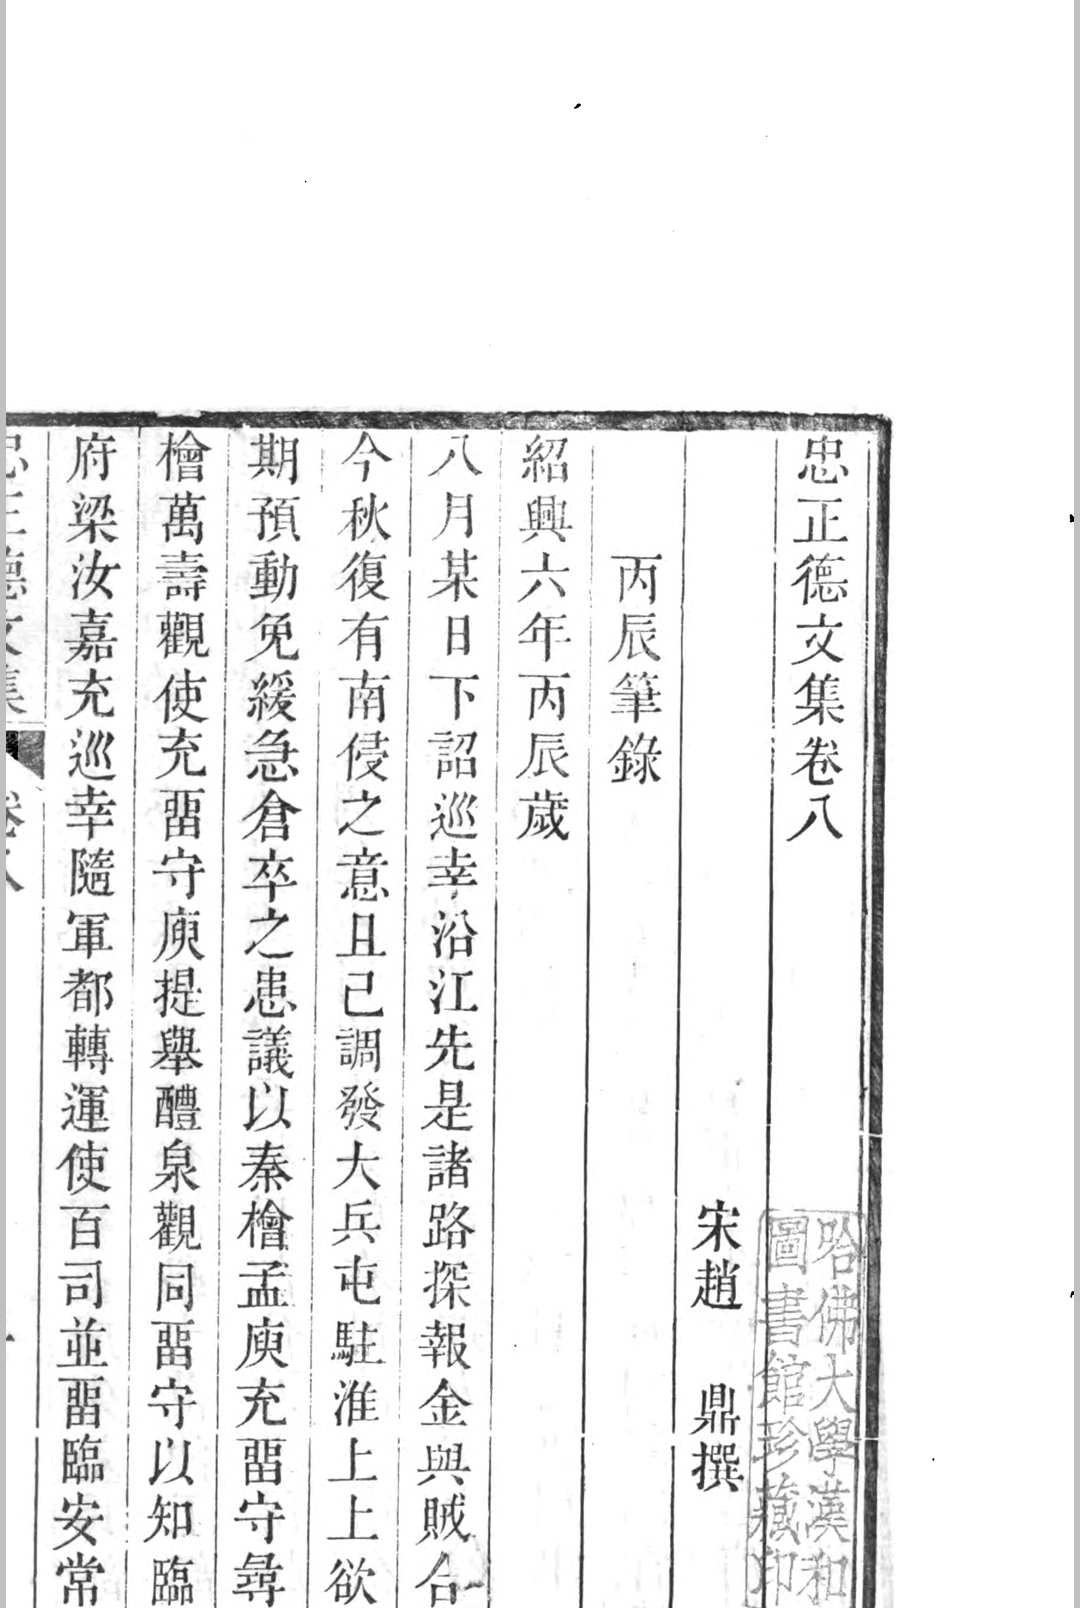 忠正德文集卷八
宋趙　鼎撰
丙辰筆錄
紹興六年丙辰歲
八月某日下詔巡幸沿江先是諸路探報金與賊合
今秋復有南侵之意且已調發大兵屯駐淮上上欲
期預動免緩急倉卒之患議以秦檜孟庾充畱守尋
檜萬壽觀使充畱守庾提舉醴泉觀同畱守以知臨
府梁汝嘉充巡幸隨軍都轉運使百司並畱臨安常
忠正德文集
卷八
哈佛大學漢和
圖書館珍藏印